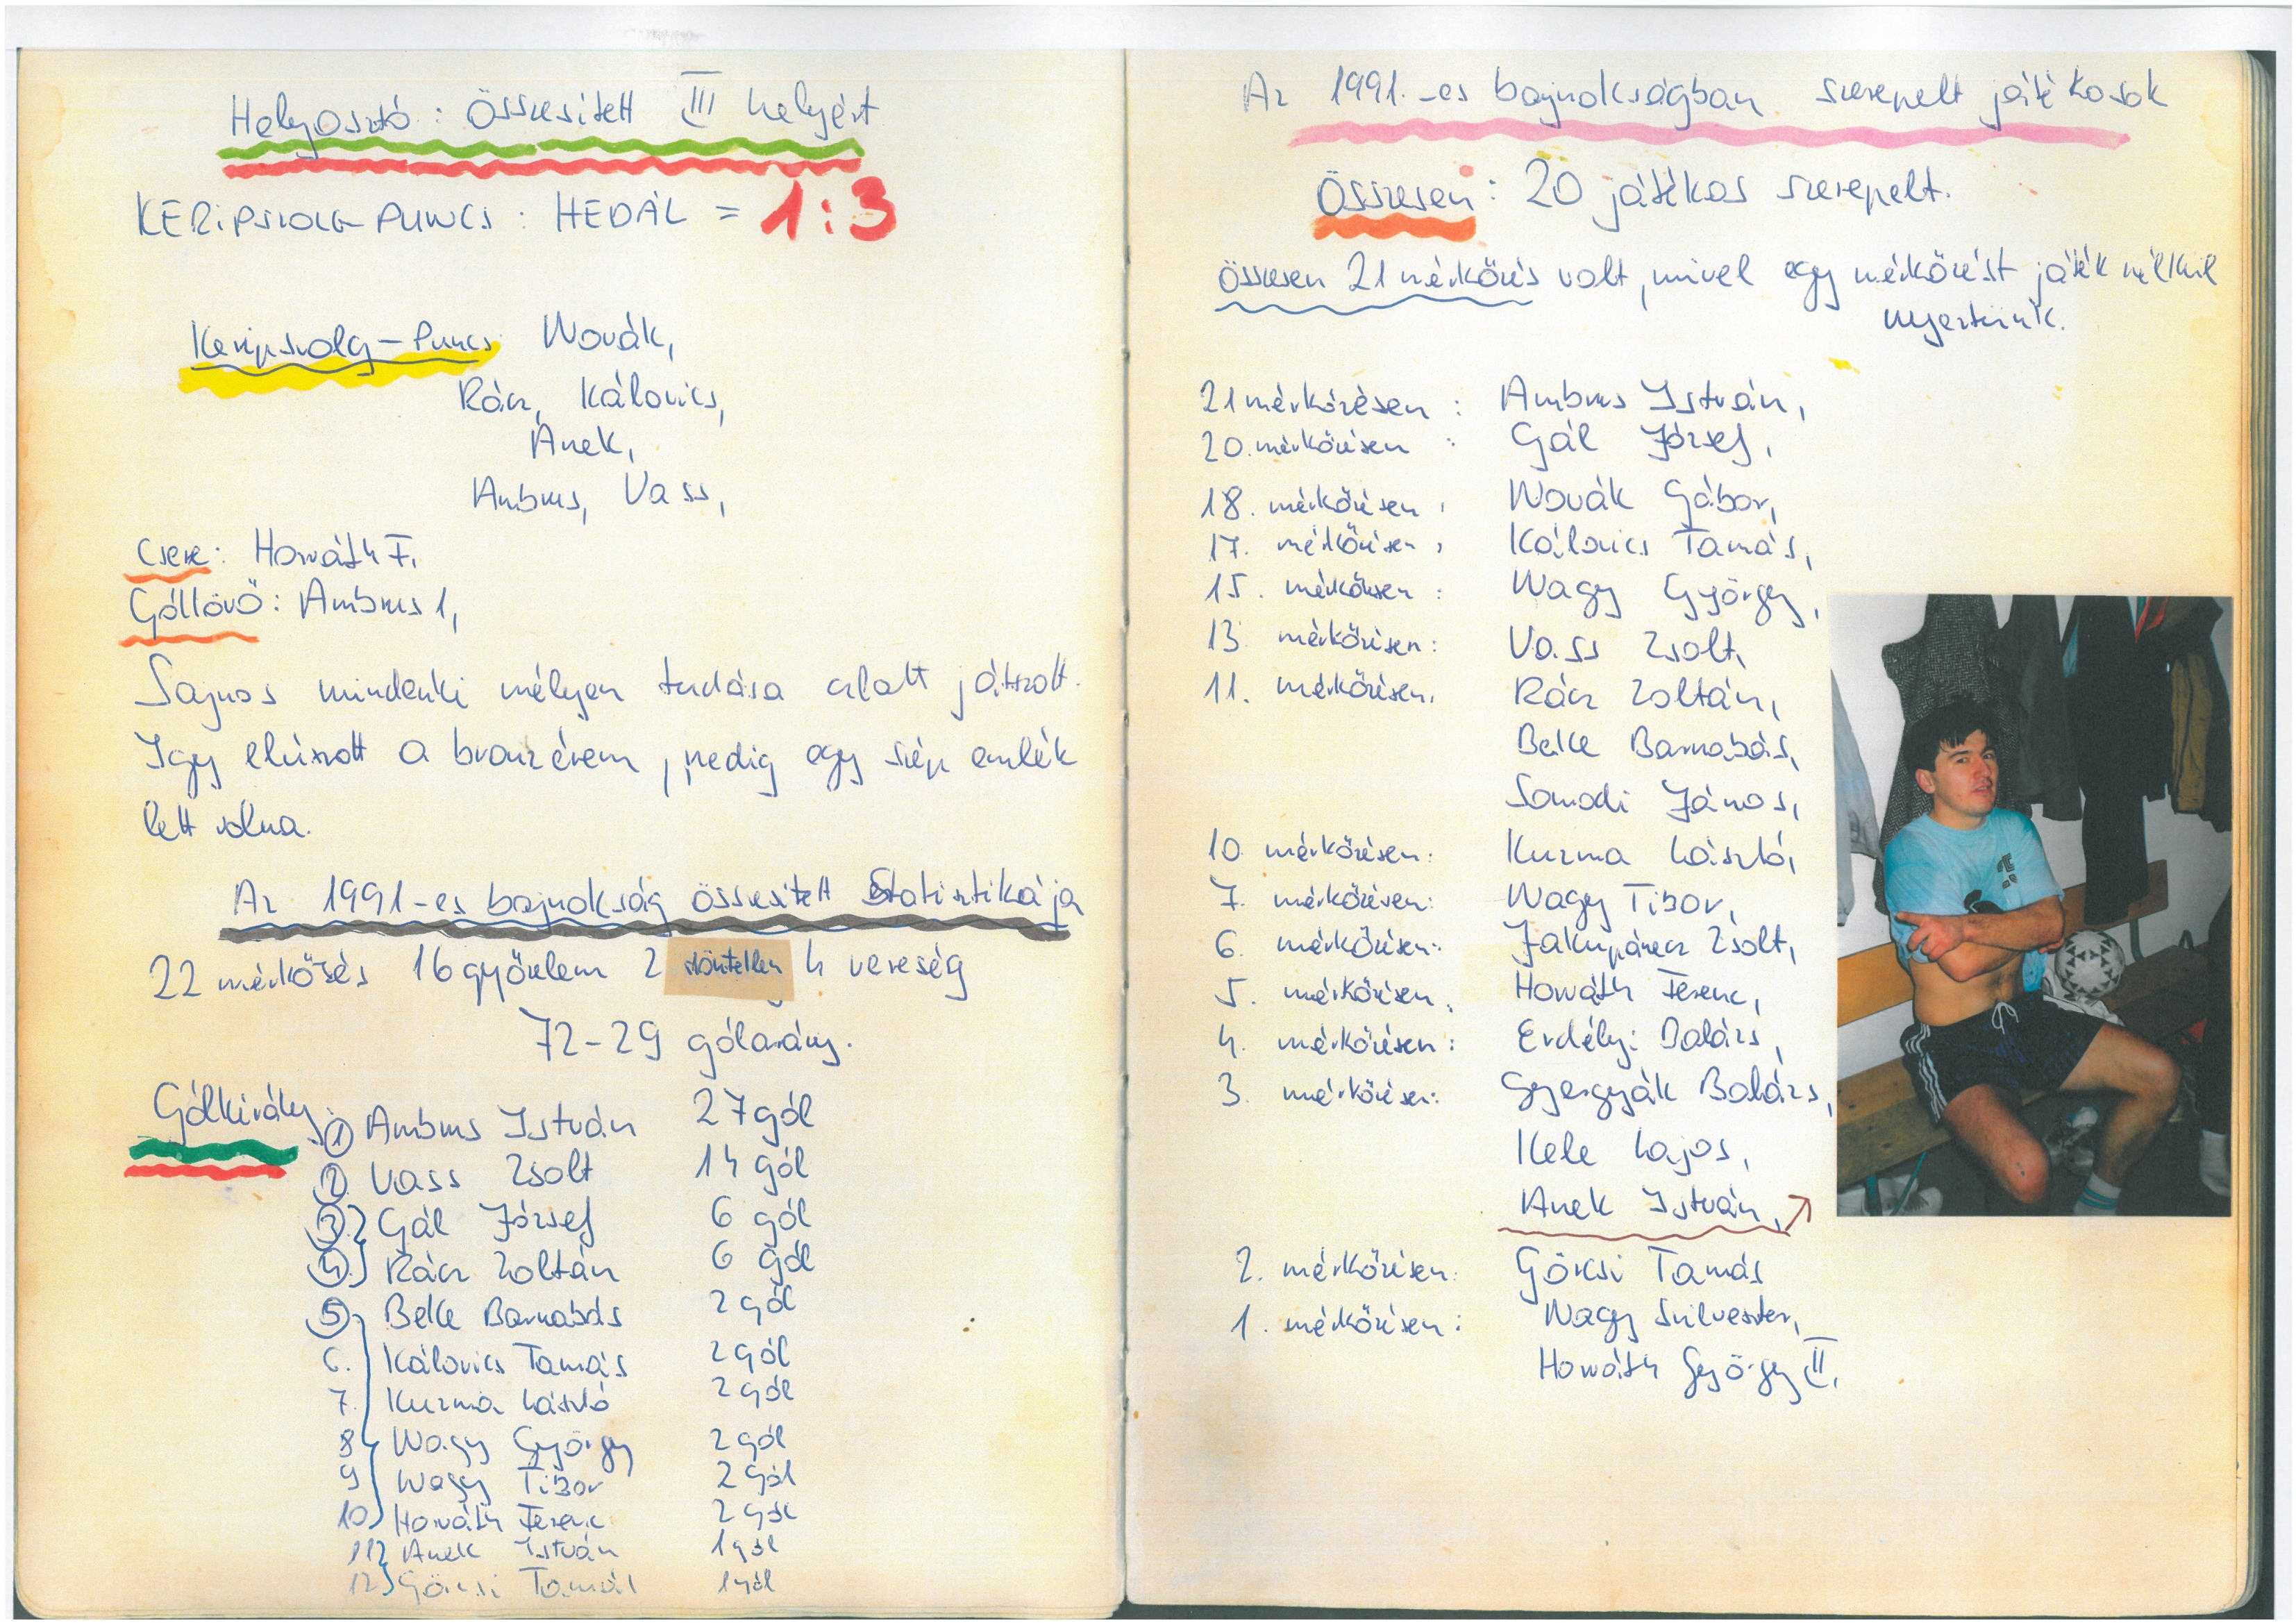 Helyosztó: Összesített III helyért
KERIPSZOLG-PUNCS : HEDÁL = 1:3
Keripszolg-Puncs Novák,
Rácz, Kálovics,
Anek,
Ambrus, Vass,
Csere: Horváth F.
Góllövő: Ambrus 1,
Sajnos mindenki mélyen tudása alatt játszott.
Igy elúszott a bronzérem, pedig egy szép emlék
lett volna.
Az 1991-es bajnokság összesített Statisztikája
22 mérkőzés 16 győzelem 2 döntetlen 4 vereség
72-29 gólarány.
Gólkirály:
① Ambrus István 27 gól
② Vass Zsolt 14 gól
③ Gál József 6 gól
④ Rácz Zoltán 6 gól
⑤ Belke Barnabás 2 gól
6. Kálovics Tamás 2 gól
7. Kuzma László 2 gól
8 Nagy György 2 gól
9 Nagy Tibor 2 gól
10 Horváth Ferenc 2 gól
11 Anek István 1 gól
12 Göcsi Tamás 1 gól
Az 1991.-es bajnokságban szerepelt játékosok
Összesen: 20 játékos szerepelt.
Összesen 21 mérkőzés volt, mivel egy mérkőzést játék nélkül
nyertünk.
21 mérkőzésen : Ambrus István,
20. mérkőzésen : Gál József,
18. mérkőzésen : Novák Gábor,
17. mérkőzésen : Kálovics Tamás,
15. mérkőzésen : Nagy György,
13. mérkőzésen: Vass Zsolt,
11. mérkőzésen. Rácz Zoltán,
Belke Barnabás,
Somodi János,
10. mérkőzésen: Kuzma László,
7. mérkőzésen: Nagy Tibor,
6. mérkőzésen: Zsolt,
5. mérkőzésen. Horváth Ferenc,
4. mérkőzésen: Erdélyi Balázs,
3. mérkőzésen: Gyergyák Balázs,
Kele Lajos,
Anek István,
2. mérkőzésen: Göcsi Tamás
1. mérkőzésen: Nagy Szilveszter,
Horváth György II.